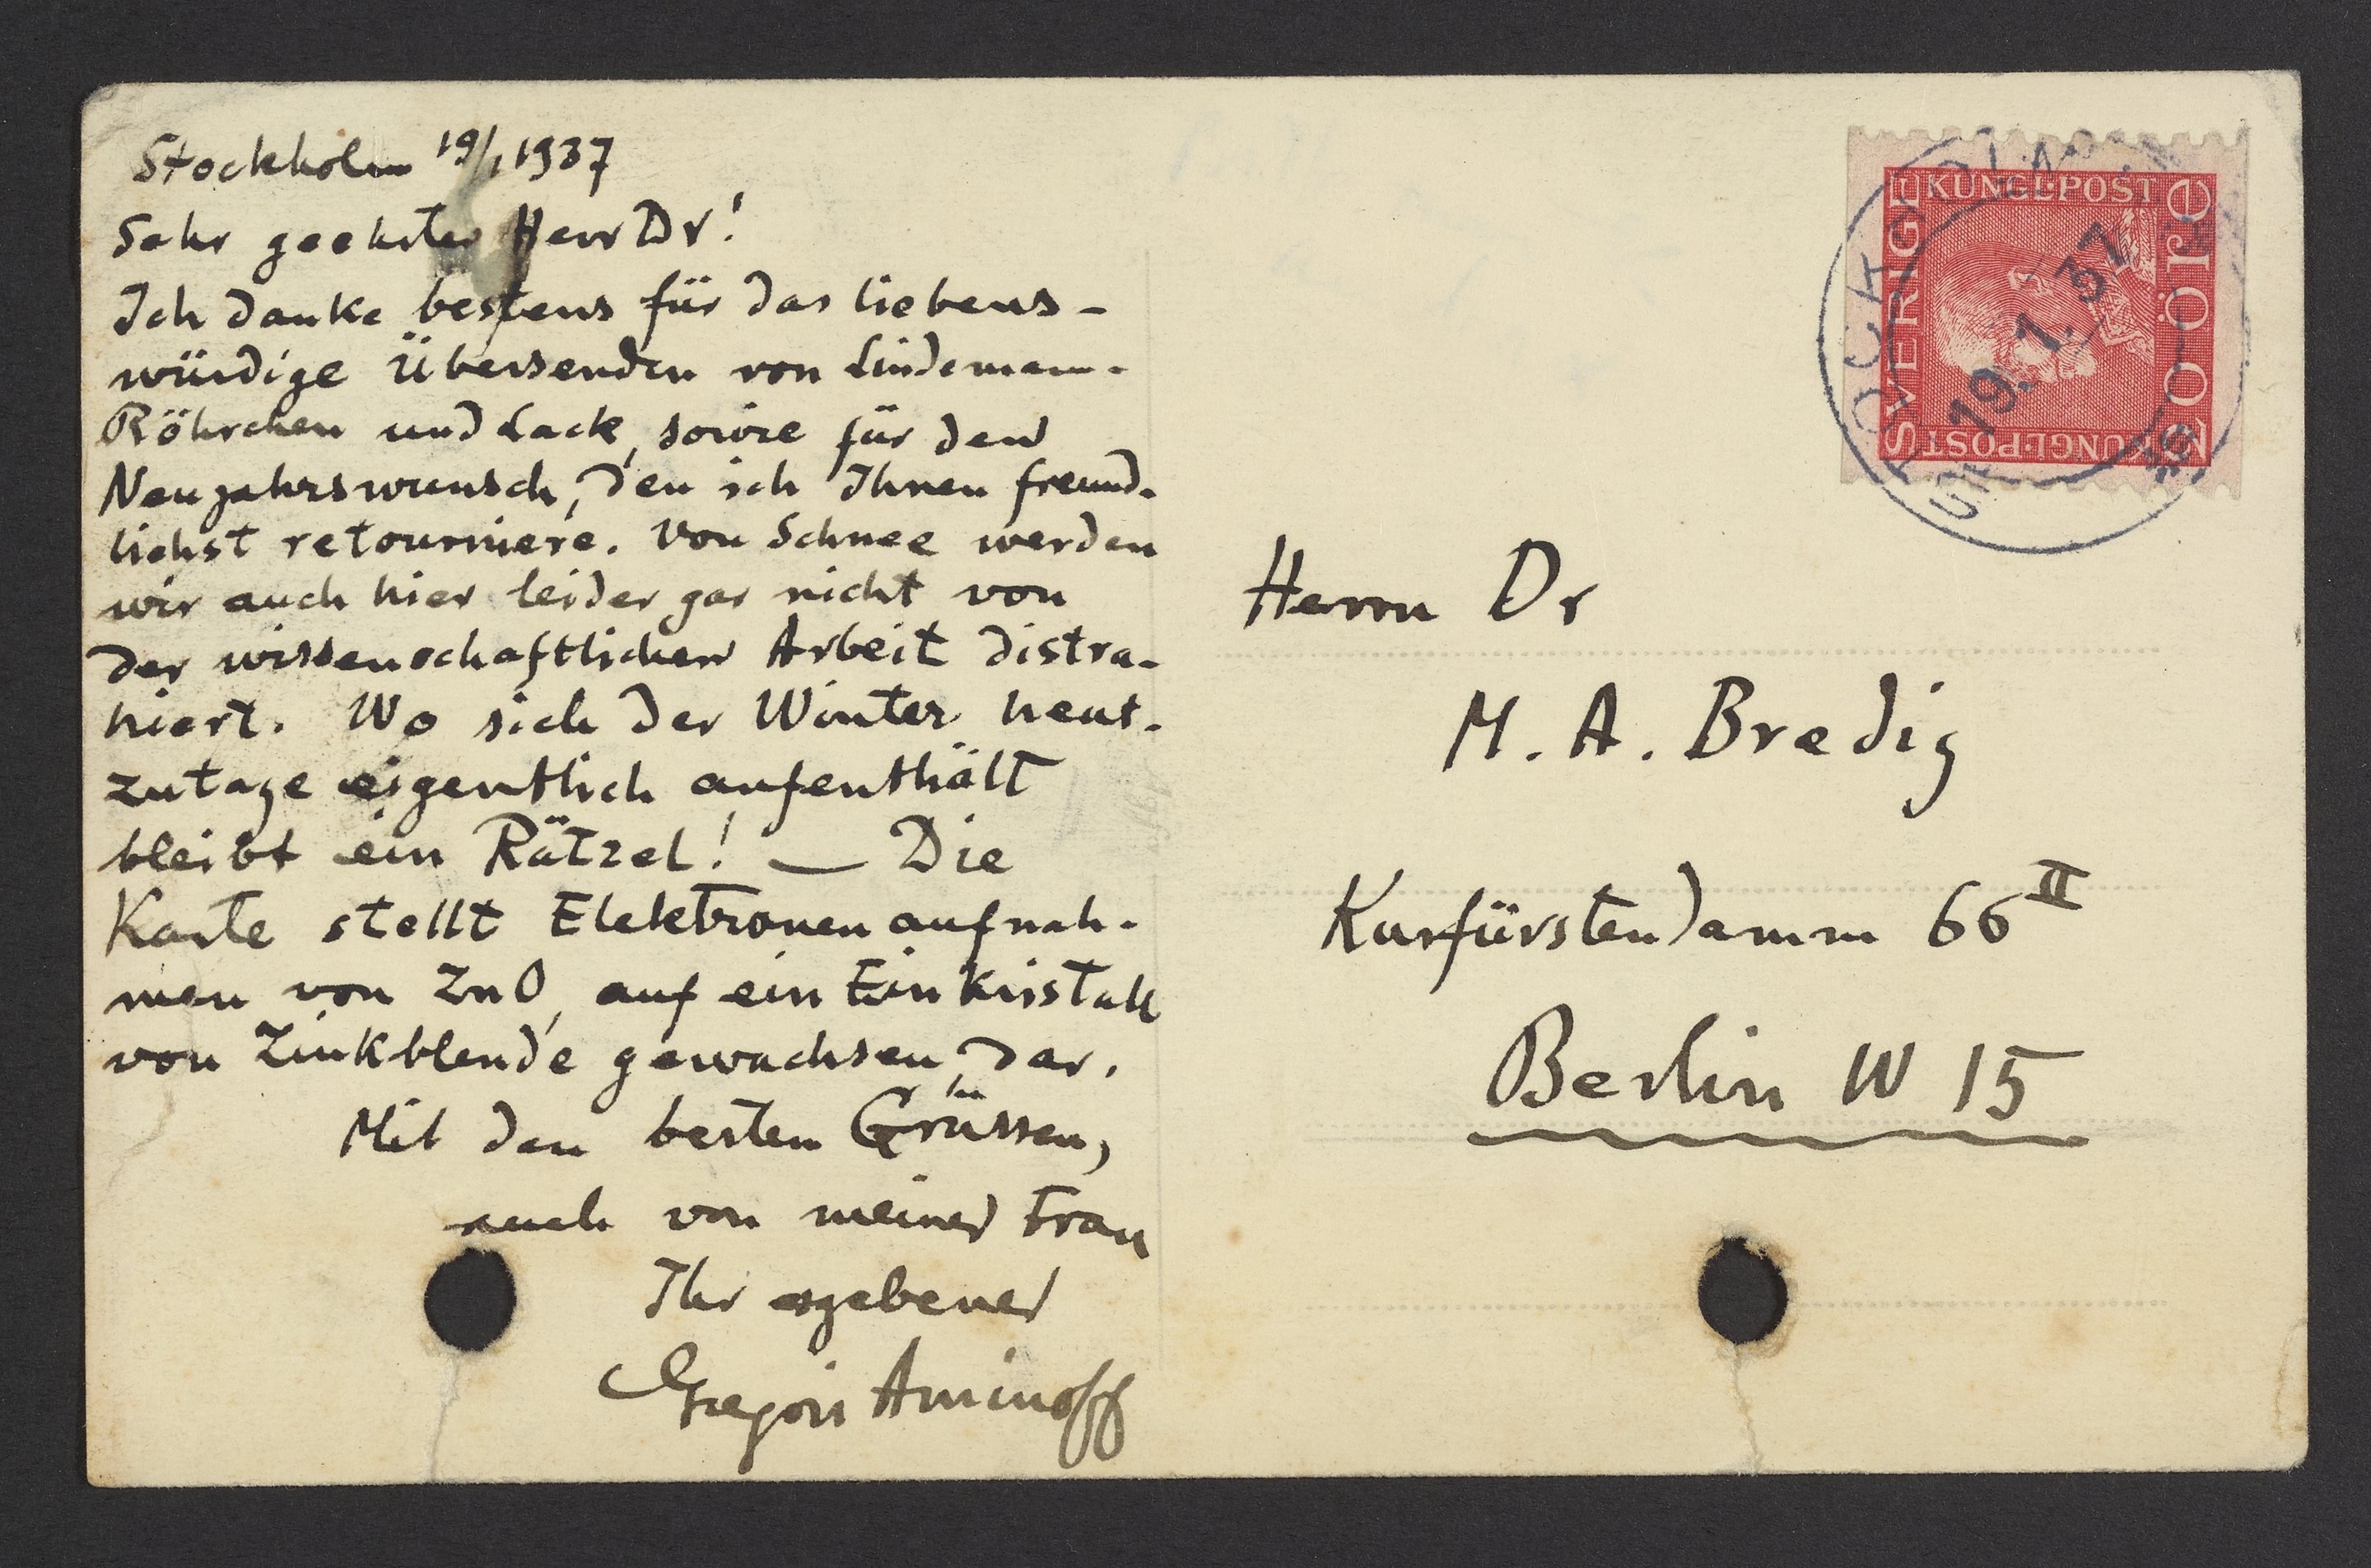 Stockholm 19/1 1937
Sehr geehrter Herr Dr!
Ich danke bestens für das liebens-
würdige Übersenden von Lindemann-
Röhrchen und Lack, sowie für den
Neujahrswunsch, den ich Ihnen freund-
lichst retourniere. Von Schnee werden
wir auch hier leider gar nicht von
der wissenschaftlichen Arbeit distra-
hiert. Wo sich der Winter heut-
zutage eigentlich aufenthält
bleibt ein Rätzel! — Die
Karte stellt Elektronenaufnah-
men von ZnO, auf ein Einkristall
von Zinkblende gewachsen, dar.
Mit den besten Grüssen,
auch von meiner Frau
Ihr ergebener
Gregori Aminoff
KUNGL·POST
SVERIGE
20 öre
KUNGL·POST
STOCKHOLM
19.1.37
Herrn Dr
M. A. Bredig
Kurfürstendamm 66 II
Berlin W 15